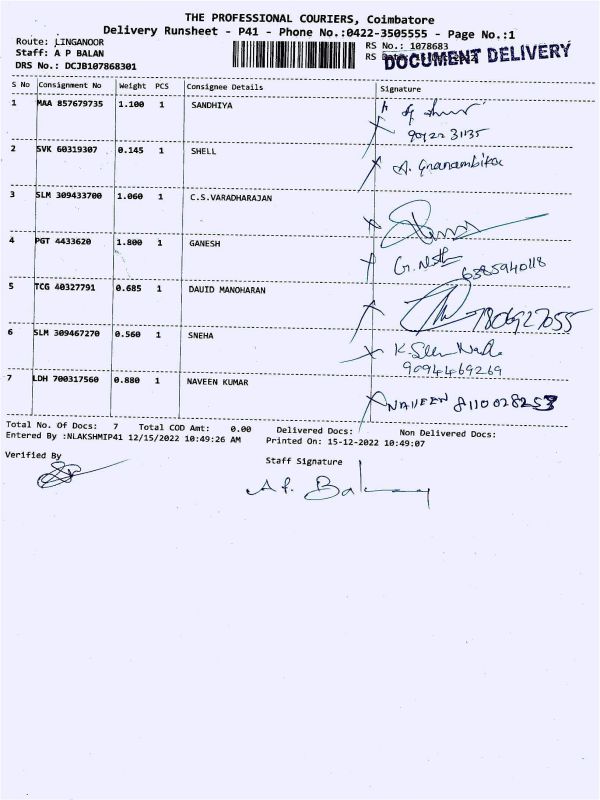 THE PROFESSIONAL COURIERS, Coimbatore
Delivery Runsheet - P41 - Phone No.:0422-3505555 - Page No.:1
Route: LINGANOOR
Staff: A P BALAN
DRS No.: DCJB107868301
RS No.: 1078683
RS
DOCUMENT DELIVERY
S No Consignment No Weight PCS Consignee Details Signature
1 MAA 857679735 1.100 1 SANDHIYA
2 SVK 60319307 0.145 1 SHELL A. Gnanambikai
3 SLM 309433700 1.060 1 C.S.VARADHARAJAN
4 PGT 4433620 1.800 1 GANESH
6385940118
5 TCG 40327791 0.685 1 DAUID MANOHARAN
7806927055
6 SLM 309467270 0.560 1 SNEHA
9094469269
7 LDH 700317560 0.880 1 NAVEEN KUMAR
NAVEEN 8110028253
Total No. Of Docs: 7 Total COD Amt: 0.00 Delivered Docs: Non Delivered Docs:
Entered By :NLAKSHMIP41 12/15/2022 10:49:26 AM Printed On: 15-12-2022 10:49:07
Verified By
Staff Signature
A P. Balan